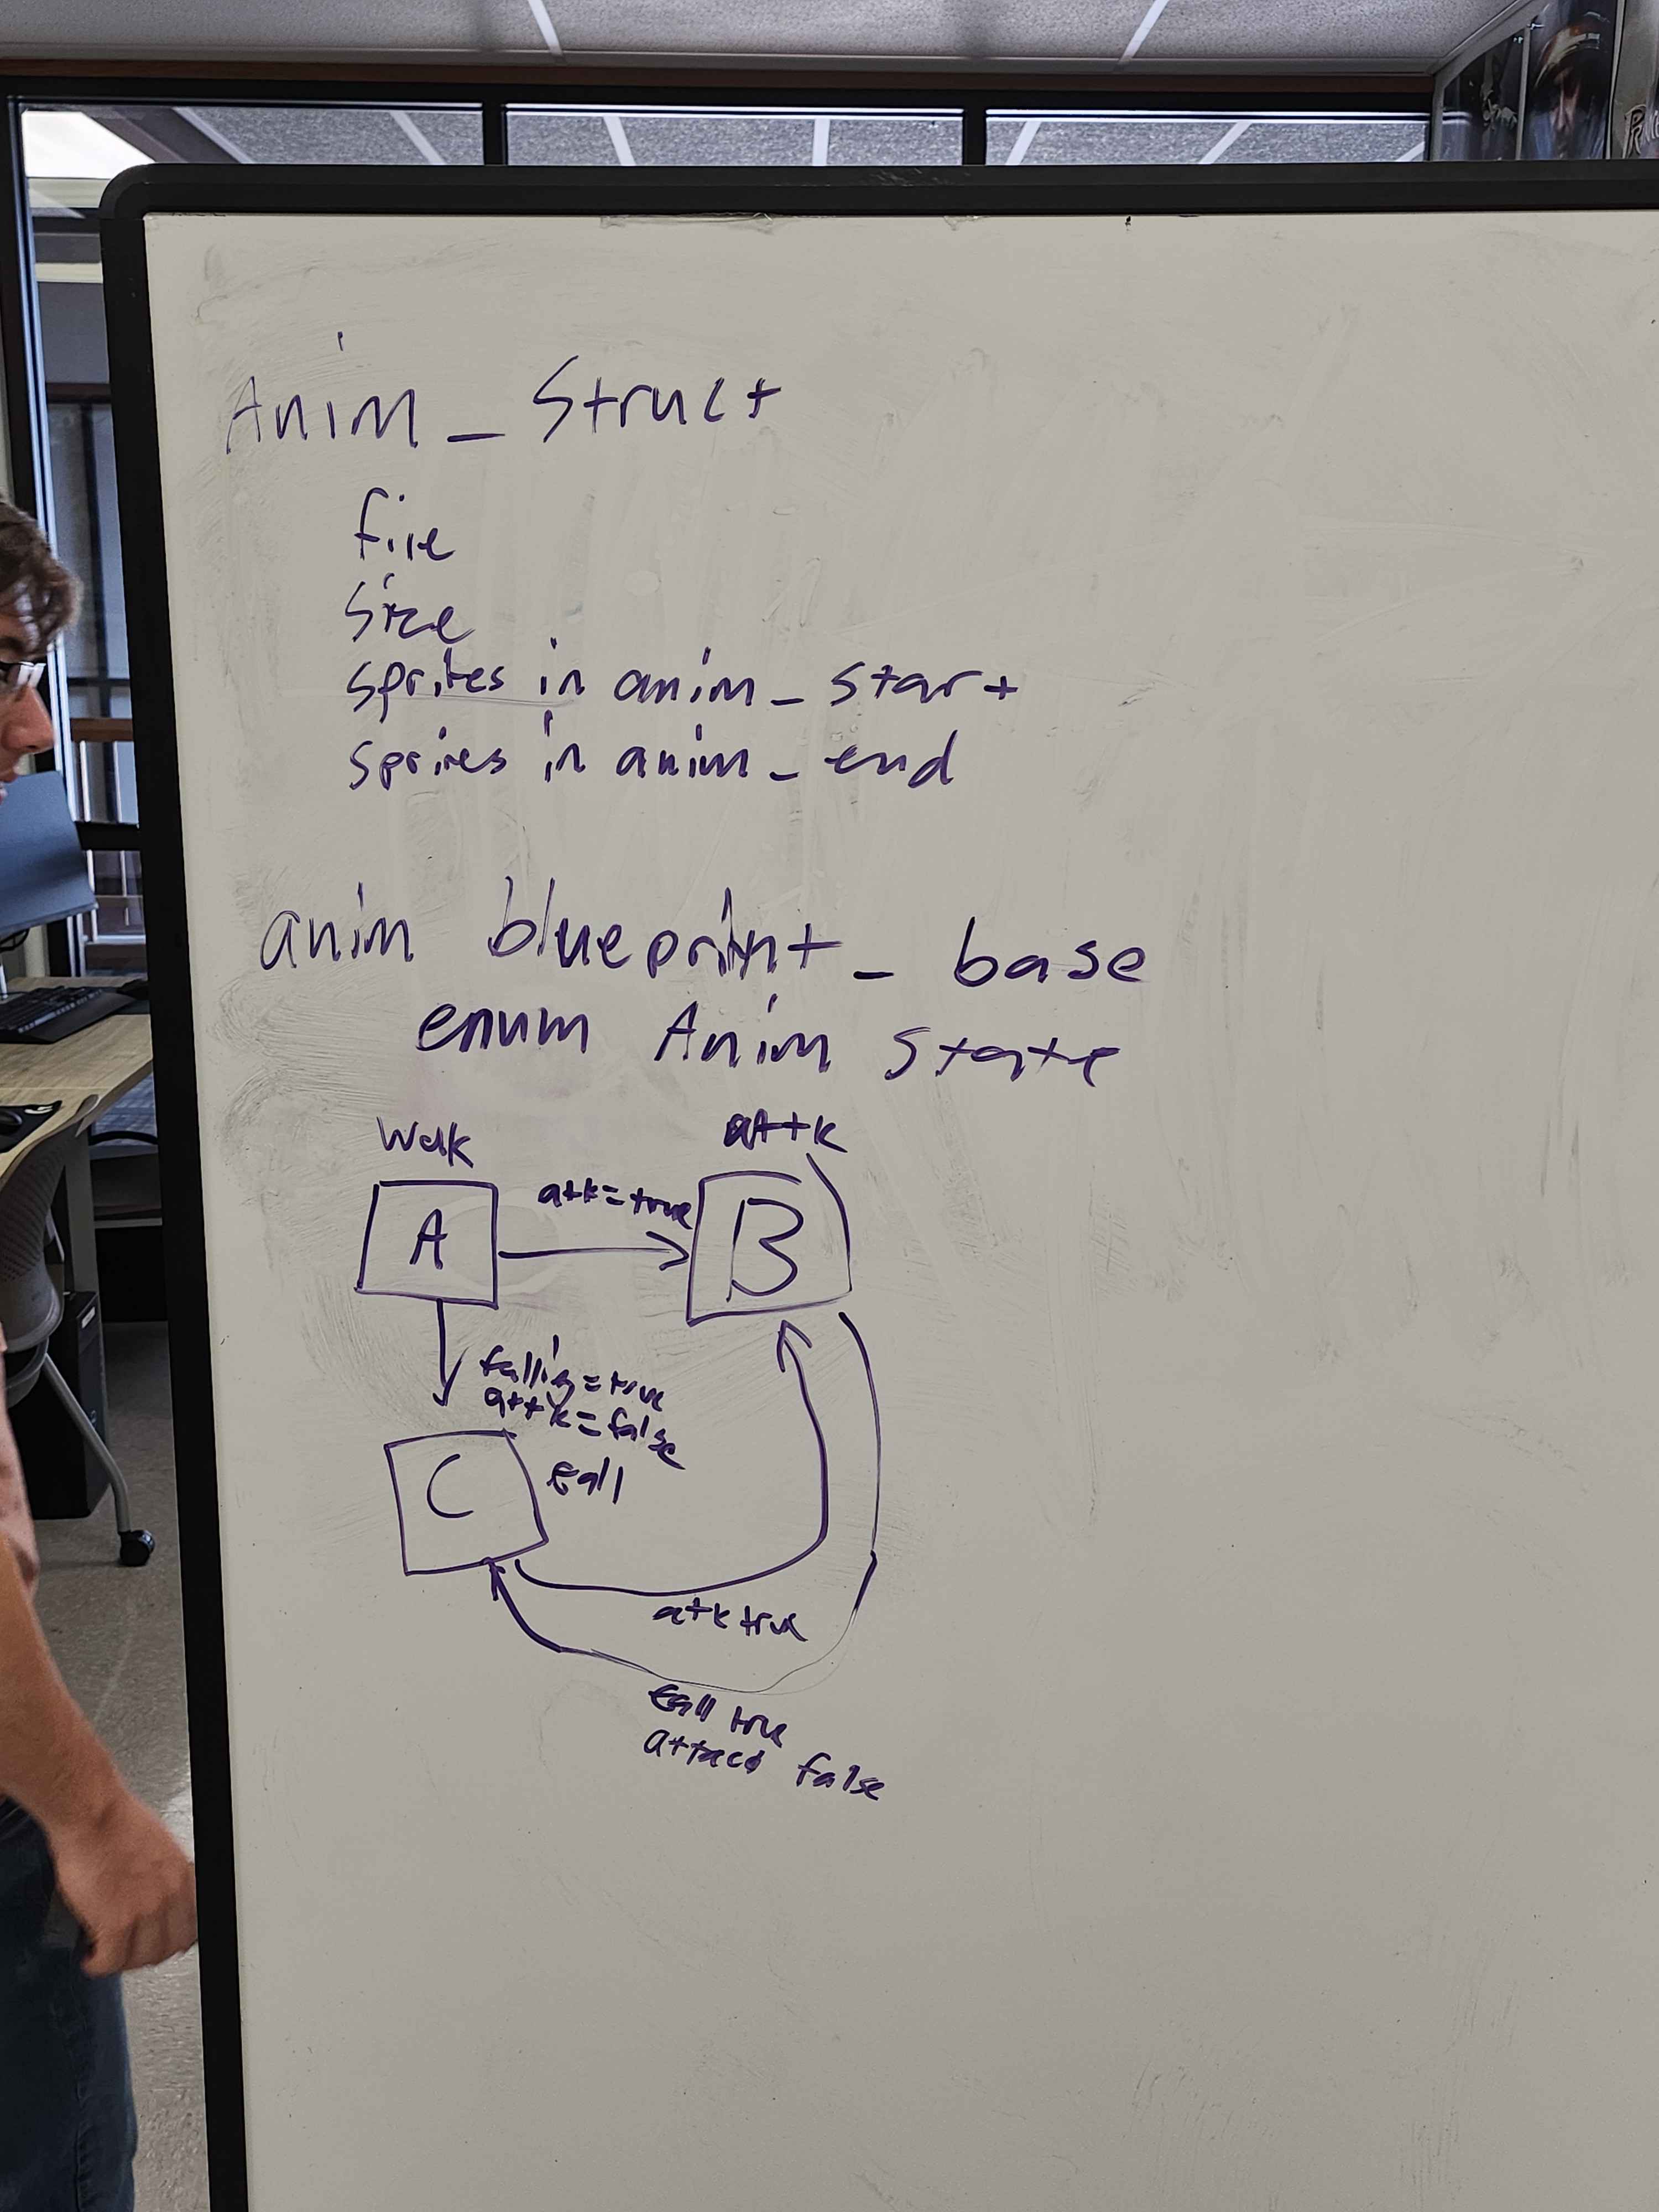 Anim_Struct
file
size
sprites in anim_start
sprites in anim_end
anim blueprint_base
enum Anim State
Walk
attk
A
atk=true
B
falling=true
attk=false
C
fall
atk true
fall true
attack false